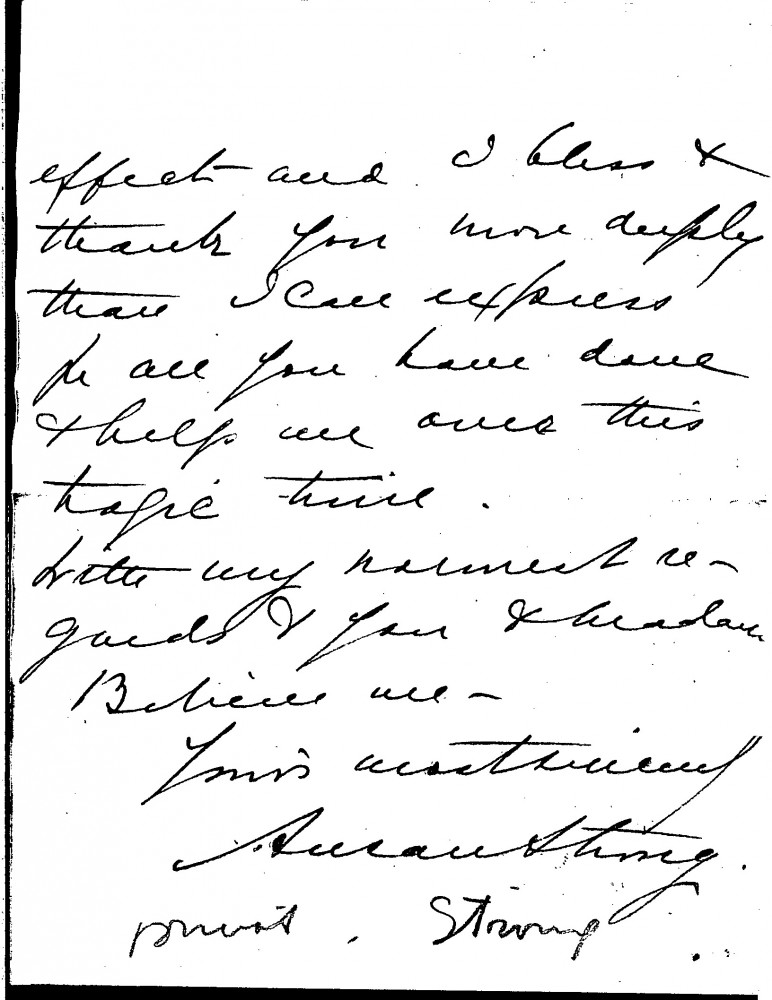 effect and I bless &
thank you more deeply
than I can express
for all you have done
& help me over this
tragic time.
With my warmest re-
gards to you & Madam
Believe me —
Yours most sincerely
Susan Strong.
Strong